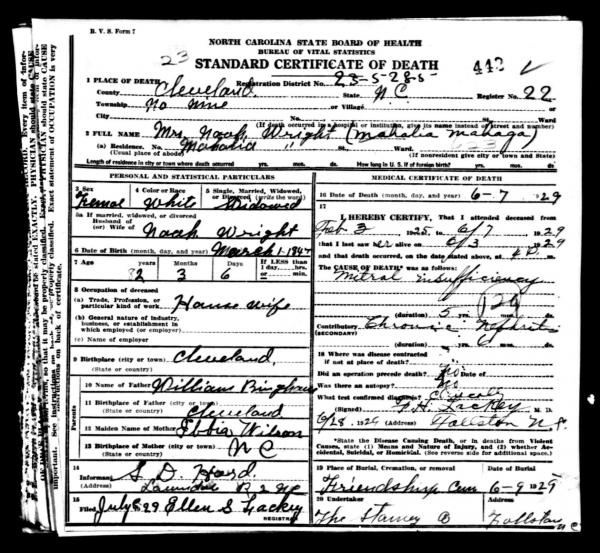 R. V. S. Form 7
NORTH CAROLINA STATE BOARD OF HEALTH
BUREAU OF VITAL STATISTICS
STANDARD CERTIFICATE OF DEATH
23
443
1 PLACE OF DEATH
Registration District No. 23-5-28-5-
County Cleveland State N C Register No. 22
Township No nine or Village
City No. St., Ward
(If death occurred in a hospital or institution, give its name instead of street and number)
2 FULL NAME Mrs. Noah Wright (Mahalia
(a) Residence. No. St., Ward
(Usual place of abode) (If nonresident give city or town and State)
Length of residence in city or town where death occurred yrs. mos. ds. How long in U. S. if of foreign birth? yrs. mos. ds.
PERSONAL AND STATISTICAL PARTICULARS
3 Sex 4 Color or Race 5 Single, Married, Widowed, or Divorced (write the word)
Femal White Widowed
5a If married, widowed, or divorced
Husband of
(or) Wife of Noah Wright
6 Date of Birth (month, day, and year) March 1 1847
7 Age Years Months Days If LESS than 1 day, hrs. or min.
82 3 6
8 Occupation of deceased
(a) Trade, Profession, or particular kind of work House wife
(b) General nature of industry, business, or establishment in which employed (or employer)
(c) Name of employer
9 Birthplace (city or town) Cleveland
(State or country)
Parents
10 Name of Father William
11 Birthplace of Father (city or town) Cleveland
(State or country)
12 Maiden Name of Mother Wilson
13 Birthplace of Mother (city or town) N C
(State or country)
14
Informant S. D. Hord
(Address) Lawndale R 2 NC
15
Filed July 8, 29 Ellen S Lackey
REGISTRAR
MEDICAL CERTIFICATE OF DEATH
16 Date of Death (month, day, and year) 6-7 1929
17
I HEREBY CERTIFY, That I attended deceased from
Feb 3 1925, to 6/7 1929
that I last saw her alive on 6/3 1929
and that death occurred, on the date stated above, at
The CAUSE OF DEATH* was as follows:
Mitral insufficiency
129
(duration) 5 yrs. mos. ds.
Contributory Chronic Nephritis
(SECONDARY)
(duration) 6 yrs. mos. ds.
18 Where was disease contracted
if not at place of death?
Did an operation precede death? no Date of
Was there an autopsy? no
What test confirmed diagnosis?
(Signed) Lackey M. D.
6/28, 1929 (Address) Fallston N C.
*State the Disease Causing Death, or in deaths from Violent Causes, state (1) Means and Nature of Injury, and (2) whether Accidental, Suicidal, or Homicidal. (See reverse side for additional space).
19 Place of Burial, Cremation, or removal Date of Burial
Friendship Cem 6-9 1929
20 Undertaker Address
The Stamey Fallston NC